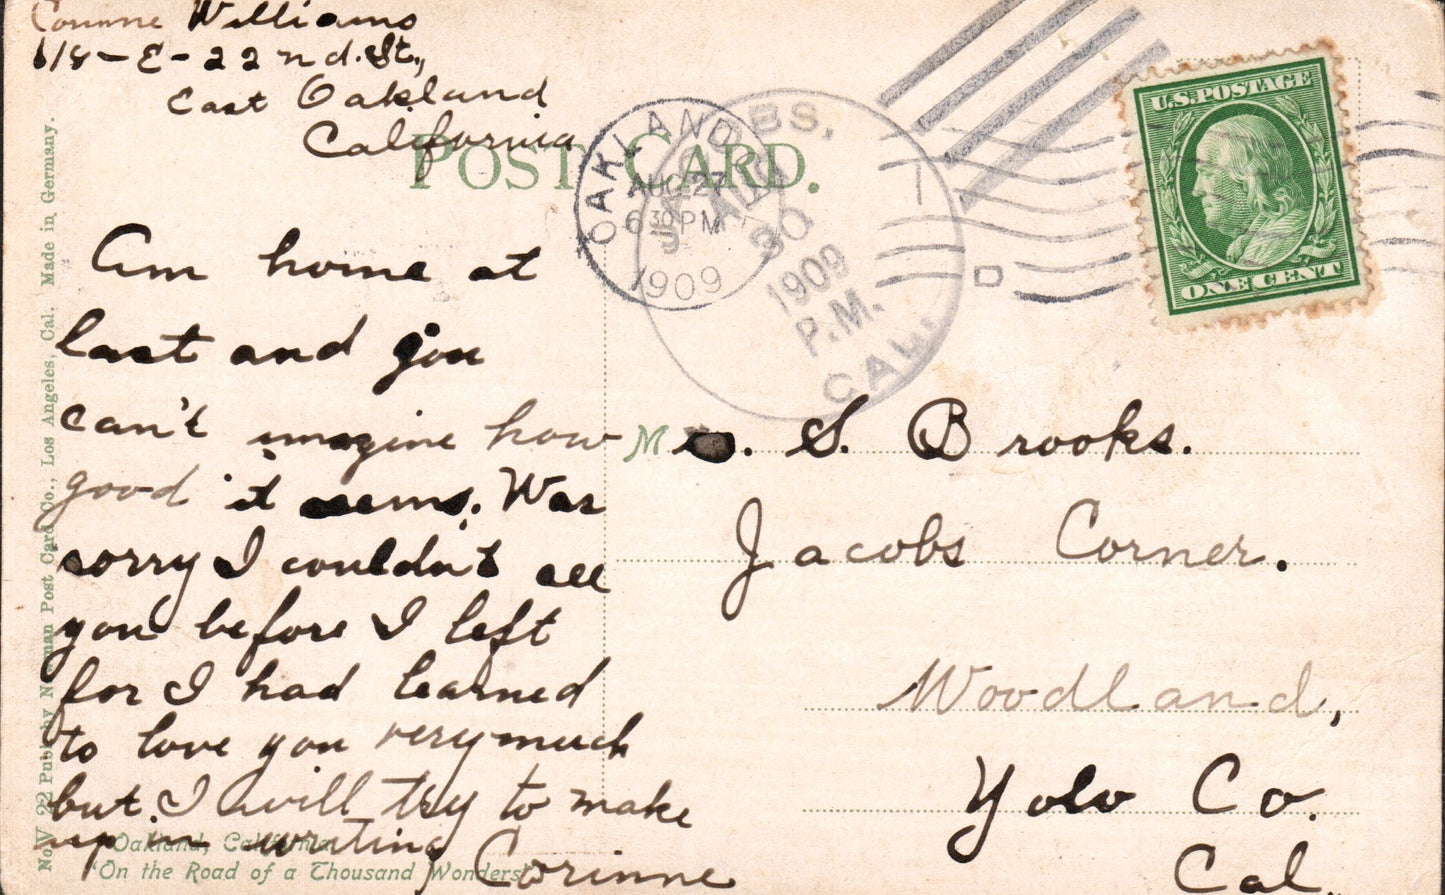 Corinne Williams
618-E-22nd. St.,
East Oakland
California
POST CARD.
OAKLAND
AUG 27
6 30 PM
1909
JACOBS,
AUG
30
1909
P.M.
CAL.
U.S. POSTAGE
ONE CENT
Am home at
last and you
can't imagine how
good it seems. Was
sorry I couldn't see
you before I left
for I had learned
to love you very much
but. I will try to make
up in writing
Corinne
M . S. Brooks.
Jacobs Corner.
Woodland,
Yolo Co.
Cal.
No. V 22 Pub. by Newman Post Card Co., Los Angeles, Cal. Made in Germany.
Oakland, California
"On the Road of a Thousand Wonders"